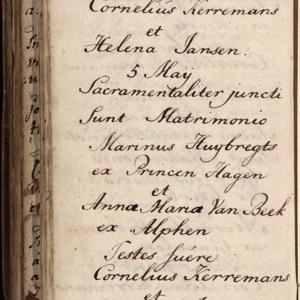 Cornelius Kerremans
et
Helena Jansen.
5 May
Sacramentaliter juncti
Sunt Matrimonio
Marinus Huybregts
ex Princen Hagen
et
Anna Maria Van Beek
ex Alphen
Testes fuére
Cornelius Kerremans
et